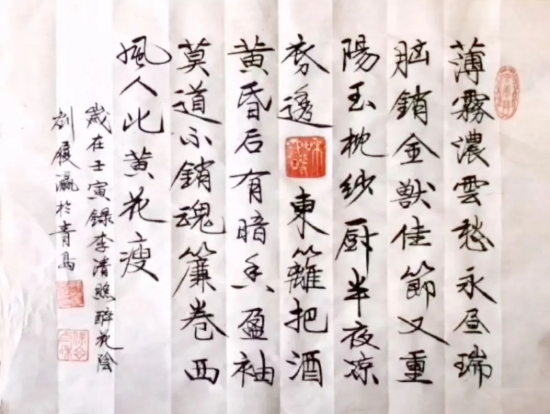 薄霧濃雲愁永昼瑞
脑銷金獸佳節又重
陽玉枕纱厨半夜凉
初透東籬把酒
黄昏后有暗香盈袖
莫道不銷魂簾卷西
風人比黄花瘦
歲在壬寅錄李清照醉花陰
刘履瀛於青島